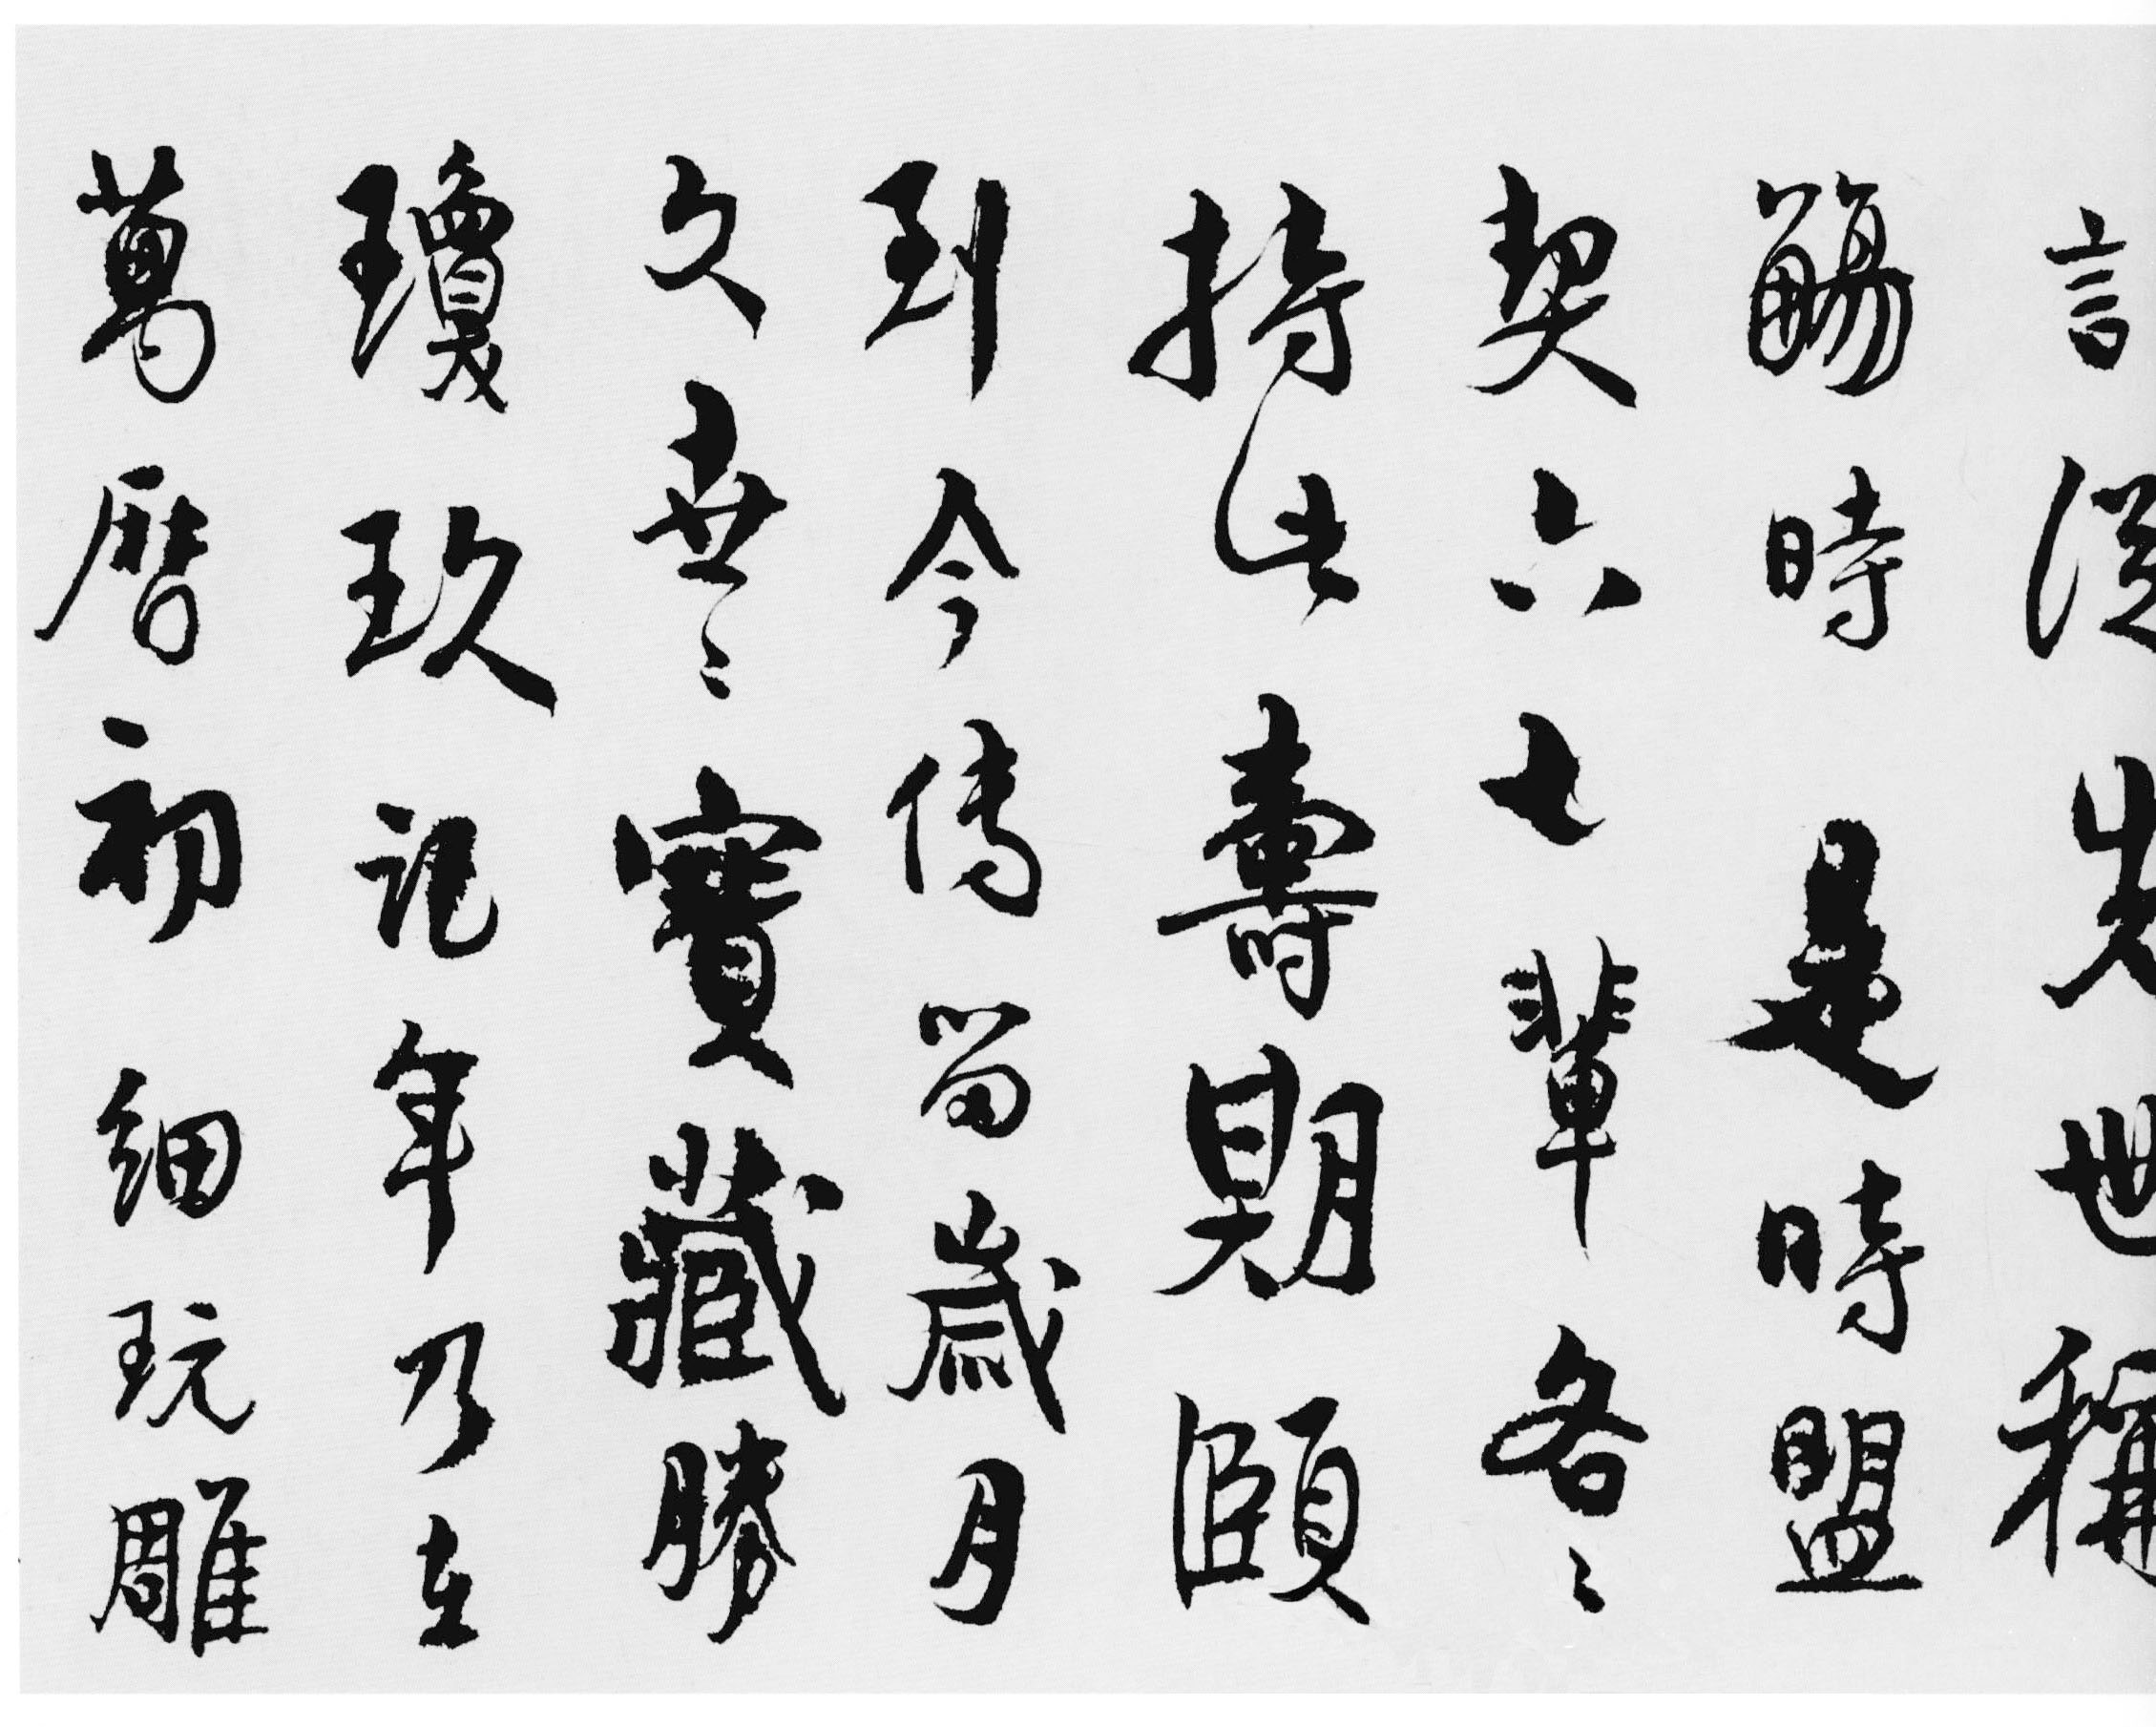 言從先世稱
觴時是時盟
契六七輩各〻
持此壽期頤
到今傳留歲月
久世〻寶藏勝
瓊玖記年乃在
萬曆初細玩雕